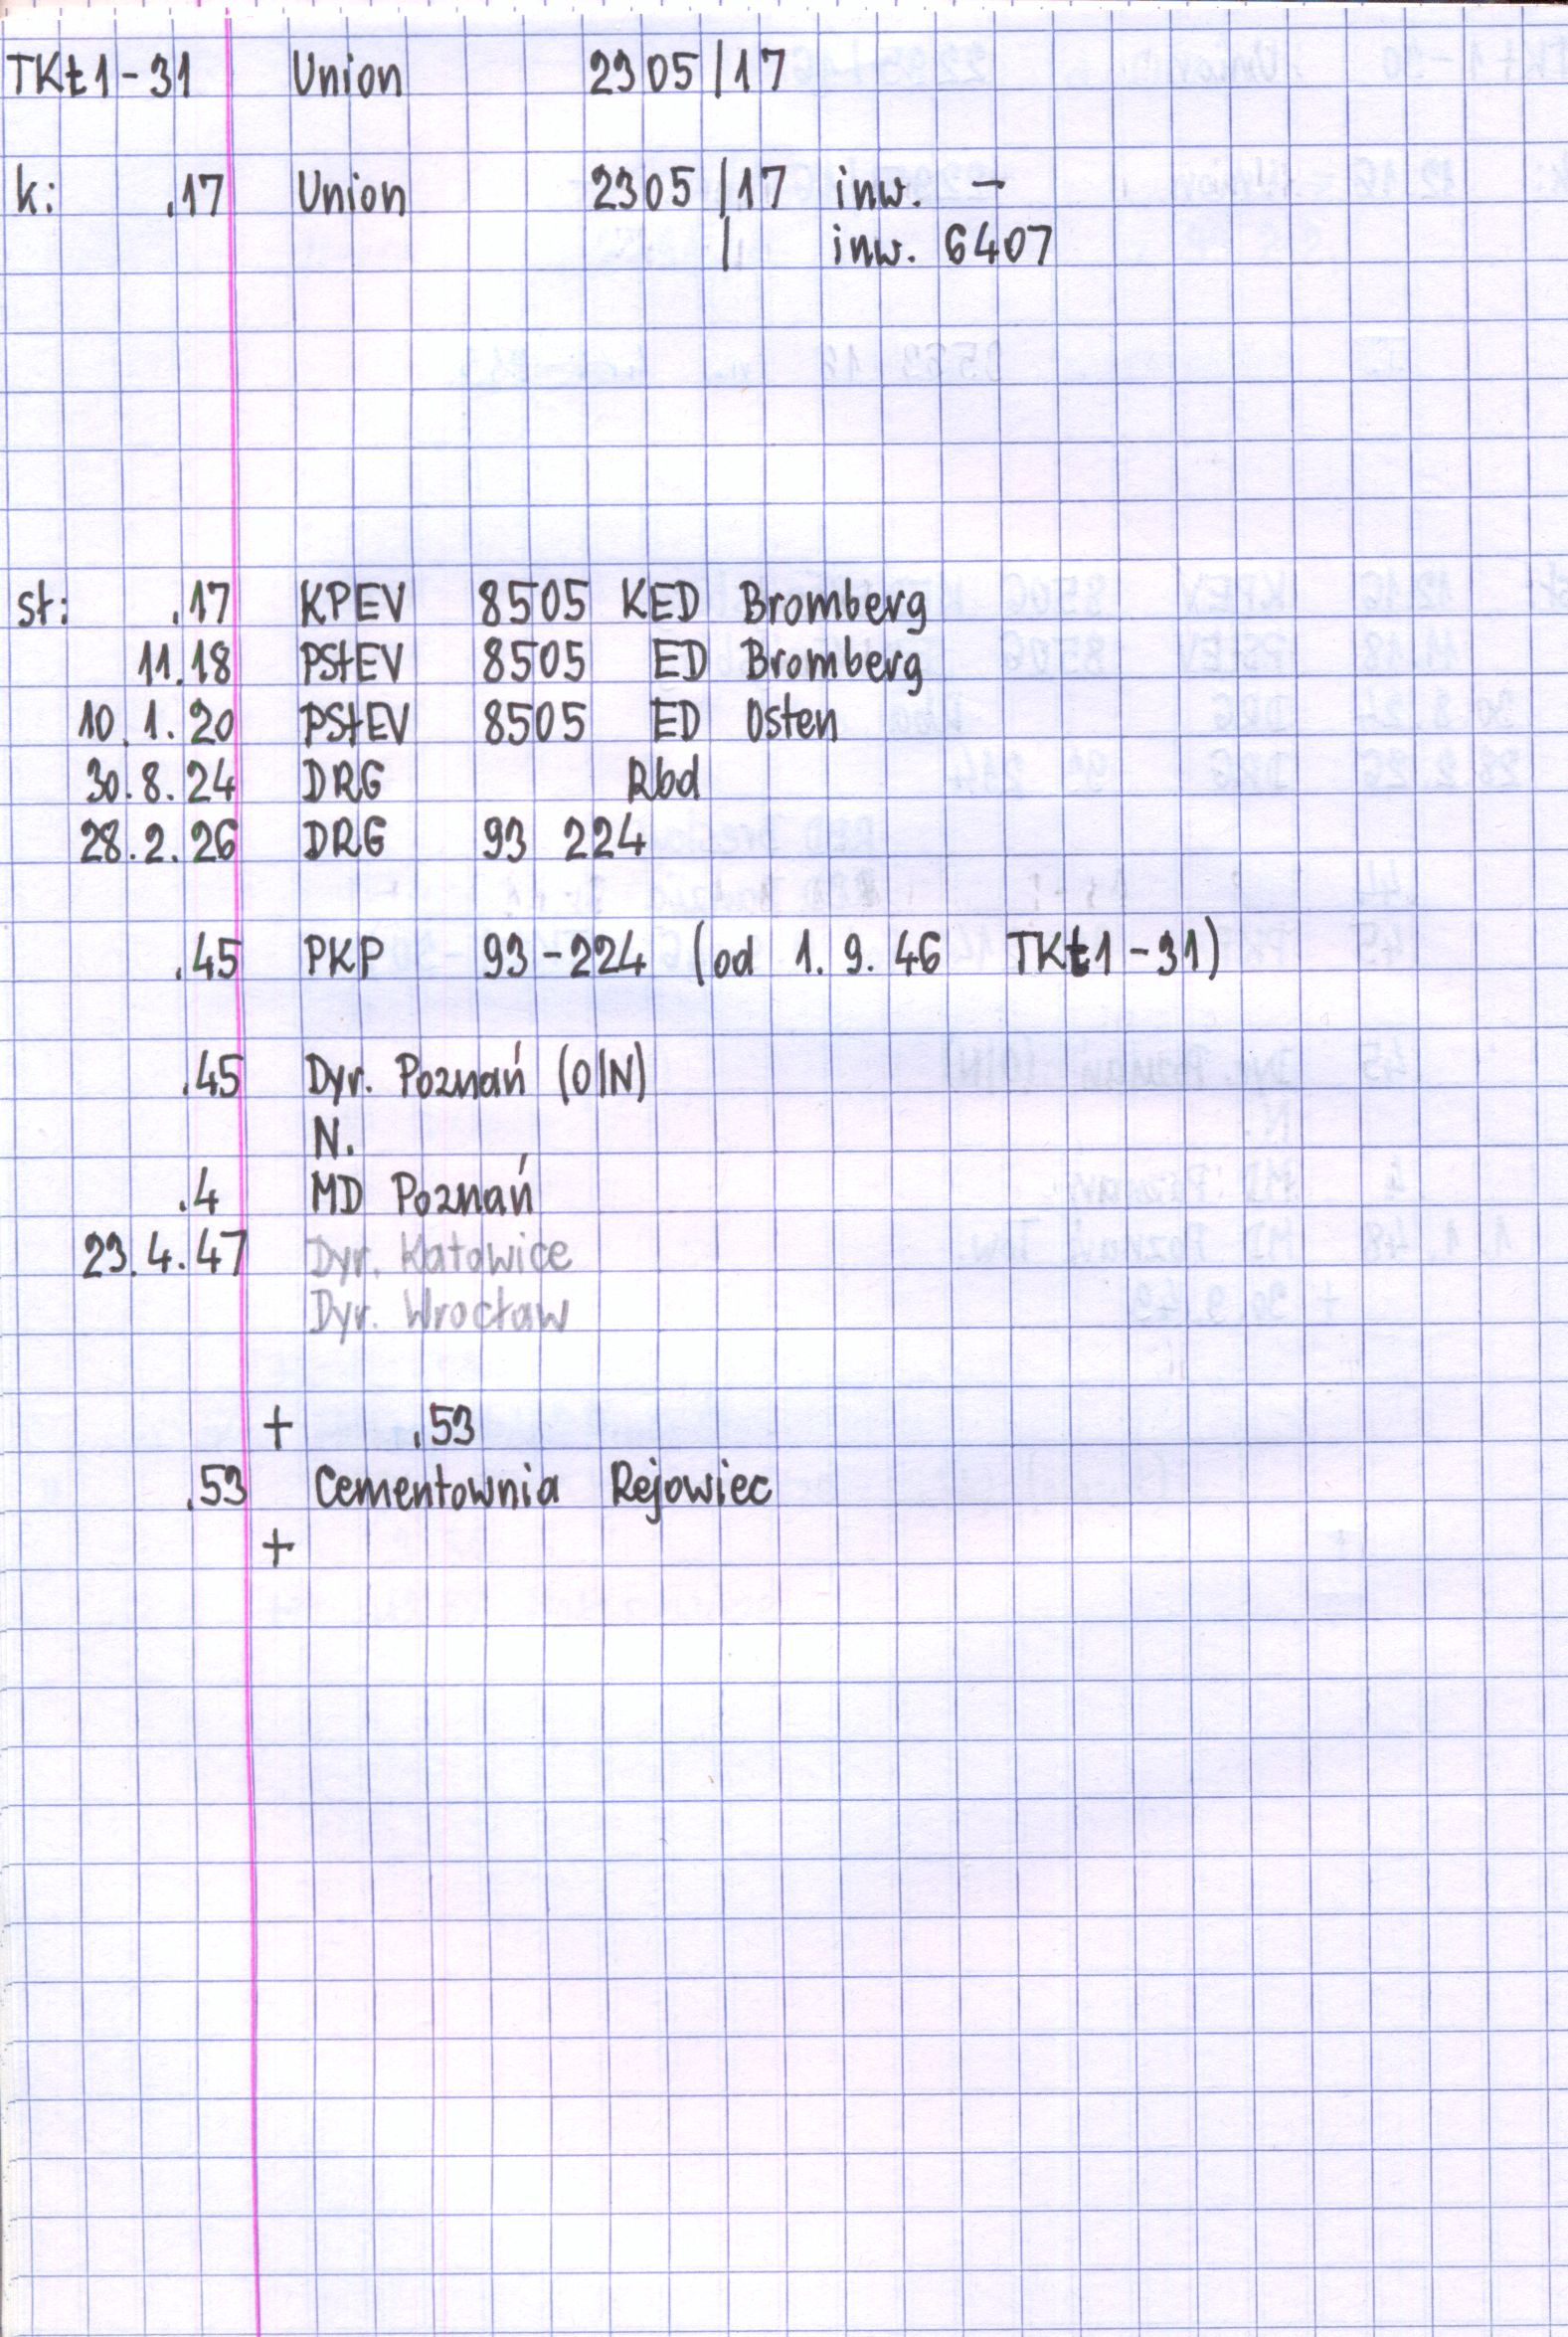 TKt1-31 Union 2305/17
k: .17 Union 2305/17 inw. -
/ inw. 6407
st: .17 KPEV 8505 KED Bromberg
11.18 PStEV 8505 ED Bromberg
10.1.20 PStEV 8505 ED Osten
30.8.24 DRG Rbd
28.2.26 DRG 93 224
.45 PKP 93-224 (od 1.9.46 TKt1-31)
.45 Dyr. Poznań (O/N)
N.
.4 MD Poznań
23.4.47 Dyr. Katowice
Dyr. Wrocław
+ .53
.53 Cementownia Rejowiec
+